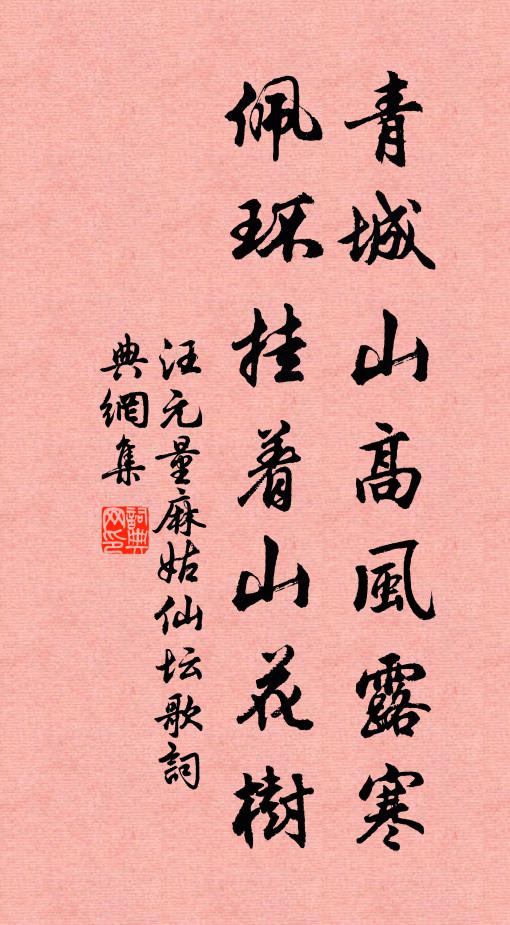 青城山高風露寒
佩环挂着山花樹
汪元量麻姑仙坛歌詞
典網集
詞典网印